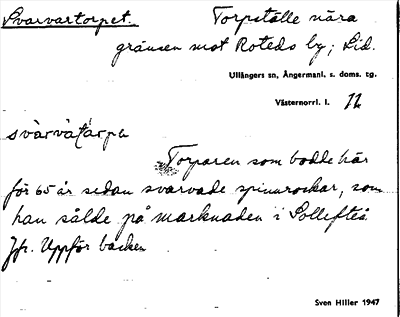 Svarvartorpet. Torpställe nära
gränsen mot Roteds by; Lid.
Ullångers sn, Ångermanl. s. doms. tg.
Västernorrl. l. 11
svàrvàtárpe
Torparen som bodde här
för 65 år sedan svarvade spinnrockar, som
han sålde på marknaden i Sollefteå
Jfr. Uppför backen
Sven Hiller 1947